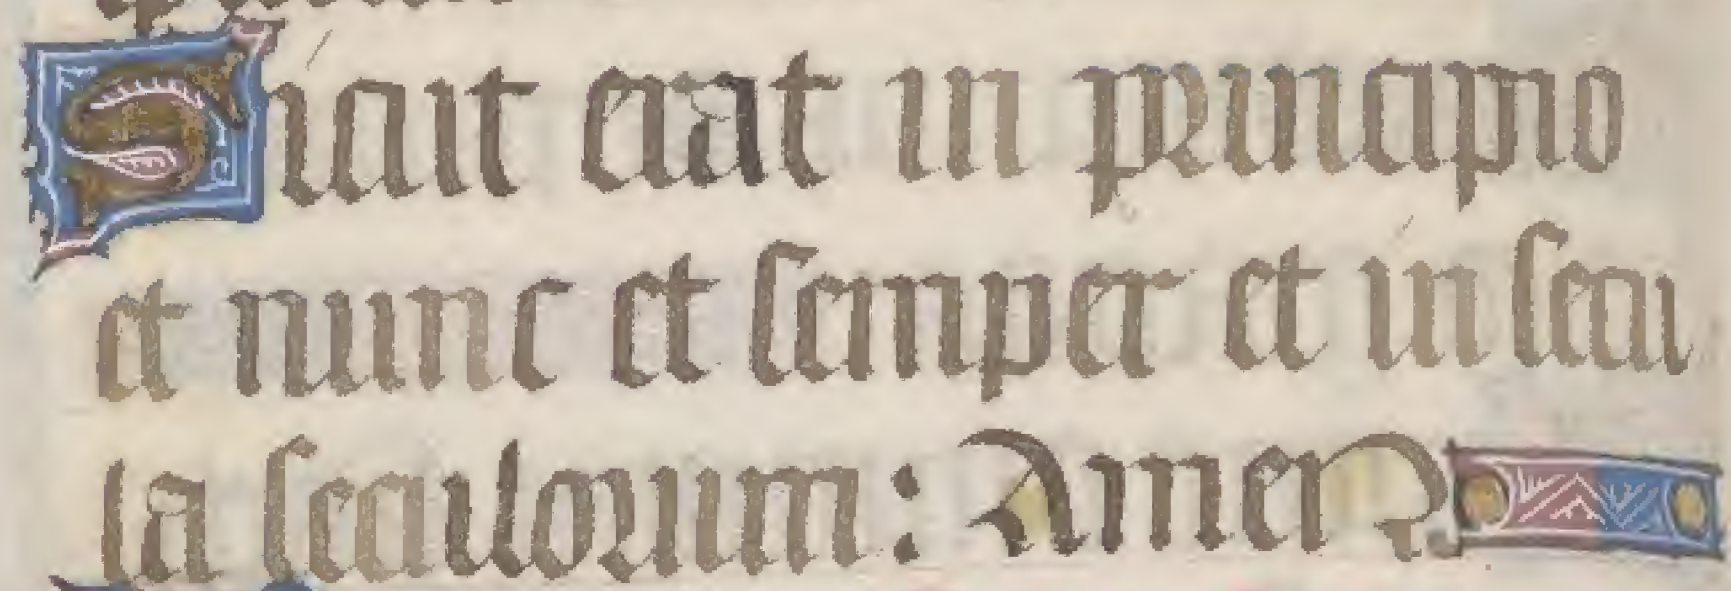 Sicut erat in principio
et nunc et semper et in secu
la seculorum: Amen